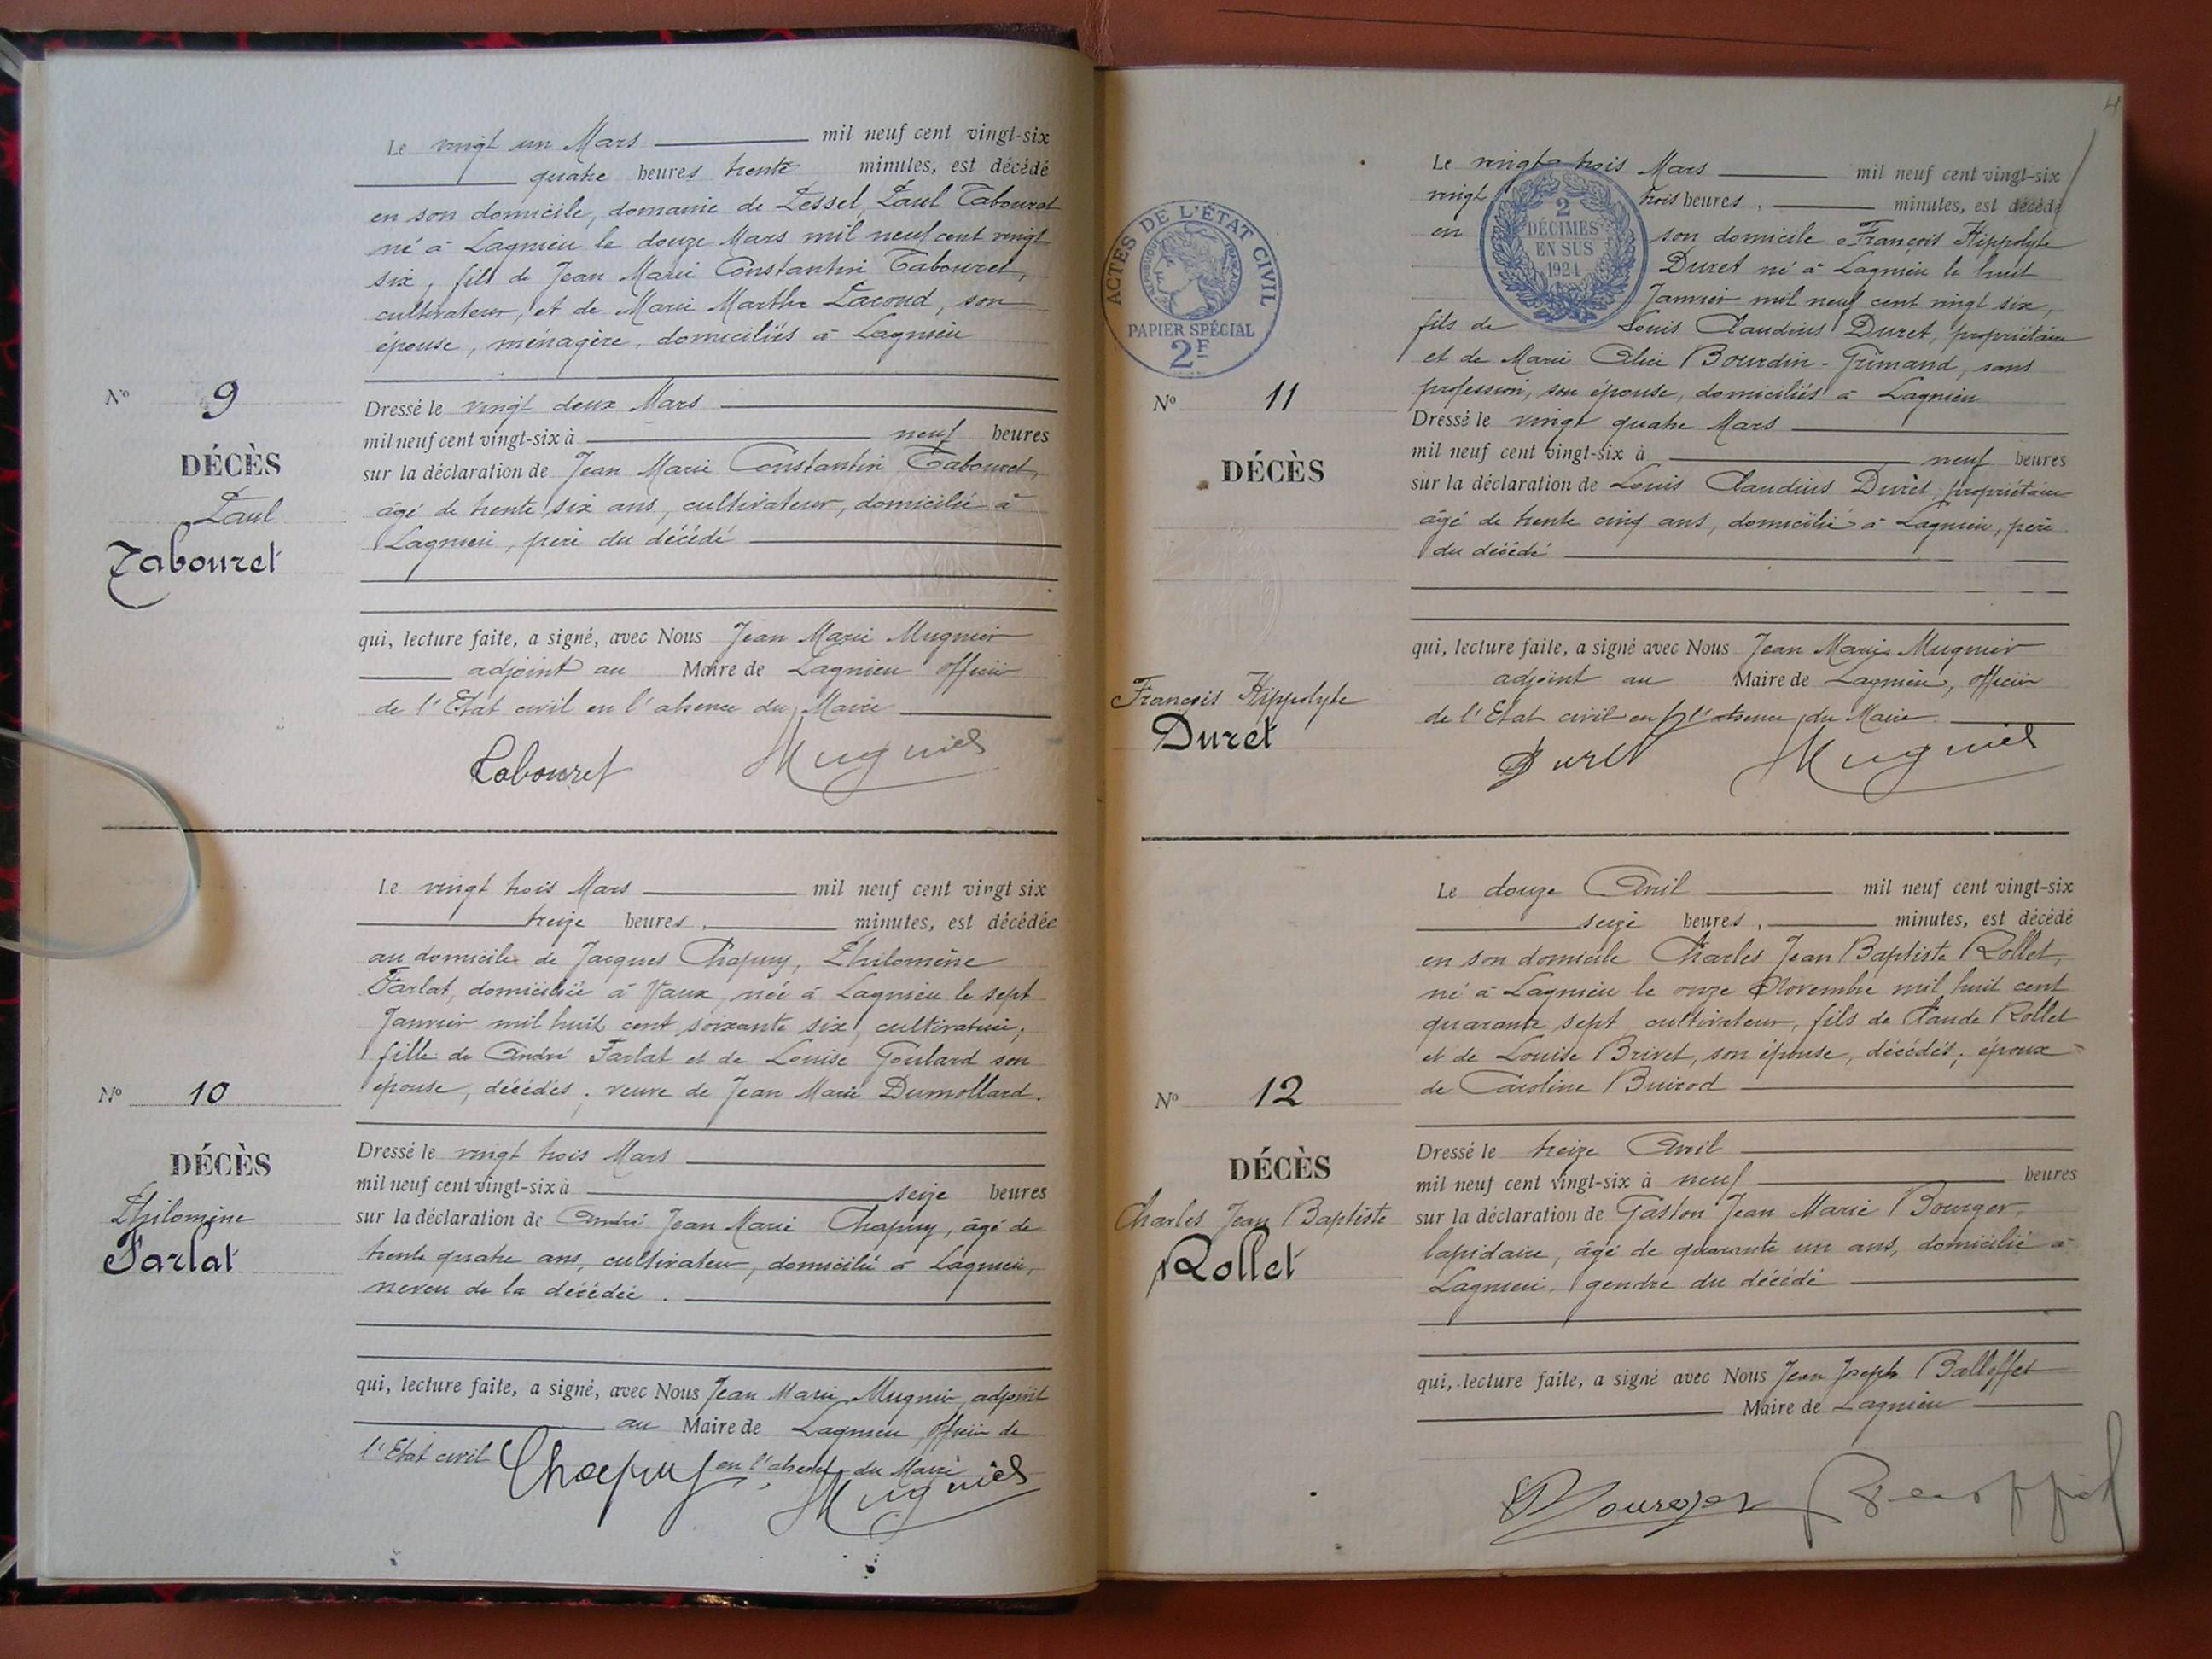 Le vingt un Mars mil neuf cent vingt-six
quatre heures trente minutes, est décédé
en son domicile, domaine de Lessel, Paul Tabouret
né à Lagnieu le douze Mars mil neuf cent vingt
six, fils de Jean Marie Constantin Tabouret,
cultivateur, et de Marie Marthe Lacoud, son
épouse, ménagère, domiciliés à Lagnieu
No 9
DÉCÈS
Paul
Tabouret
Dressé le vingt deux Mars
mil neuf cent vingt-six à neuf heures
sur la déclaration de Jean Marie Constantin Tabouret,
âgé de trente six ans, cultivateur, domicilié à
Lagnieu, père du décédé
qui, lecture faite, a signé, avec Nous Jean Marie Mugnier
adjoint au Maire de Lagnieu officier
de l'Etat civil en l'absence du Maire
Tabouret Mugnier
Le vingt trois Mars mil neuf cent vingt six
treize heures, minutes, est décédée
au domicile de Jacques Chapuy, Philomène
Farlat, domiciliée à Vaux, née à Lagnieu le sept
Janvier mil huit cent soixante six, cultivatrice,
fille de André Farlat et de Louise Goulard son
épouse, décédés; veuve de Jean Marie Dumollard.
No 10
DÉCÈS
Philomène
Farlat
Dressé le vingt trois Mars
mil neuf cent vingt-six à seize heures
sur la déclaration de André Jean Marie Chapuy, âgé de
trente quatre ans, cultivateur, domicilié à Lagnieu,
neveu de la décédée.
qui, lecture faite, a signé, avec Nous Jean Marie Mugnier, adjoint
au Maire de Lagnieu, officier de
l'Etat civil en l'absence du Maire
Chapuy Mugnier
4
Le vingt trois Mars mil neuf cent vingt-six
vingt trois heures, minutes, est décédé
en son domicile François Hippolyte
Duret né à Lagnieu le huit
Janvier mil neuf cent vingt six,
fils de Louis Claudius Duret, propriétaire
et de Marie Alice Bourdin-Grimaud, sans
profession, son épouse, domiciliés à Lagnieu
2
DÉCIMES
EN SUS
1924
ACTES DE L'ÉTAT CIVIL
RÉPUBLIQUE FRANÇAISE
PAPIER SPÉCIAL
2F
No 11
DÉCÈS
François Hippolyte
Duret
Dressé le vingt quatre Mars
mil neuf cent vingt-six à neuf heures
sur la déclaration de Louis Claudius Duret, propriétaire
âgé de trente cinq ans, domicilié à Lagnieu, père
du décédé
qui, lecture faite, a signé avec Nous Jean Marie Mugnier
adjoint au Maire de Lagnieu, officier
de l'Etat civil en l'absence du Maire
Duret Mugnier
Le douze Avril mil neuf cent vingt-six
seize heures, minutes, est décédé
en son domicile Charles Jean Baptiste Rollet,
né à Lagnieu le onze Novembre mil huit cent
quarante sept cultivateur, fils de Claude Rollet
et de Louise Brivet, son épouse, décédés; époux
de Caroline Buirod
No 12
DÉCÈS
Charles Jean Baptiste
Rollet
Dressé le treize Avril
mil neuf cent vingt-six à neuf heures
sur la déclaration de Gaston Jean Marie Bourger,
lapidaire, âgé de quarante un ans, domicilié à
Lagnieu, gendre du décédé
qui, lecture faite, a signé avec Nous Jean Joseph Balleffet
Maire de Lagnieu
Bourger